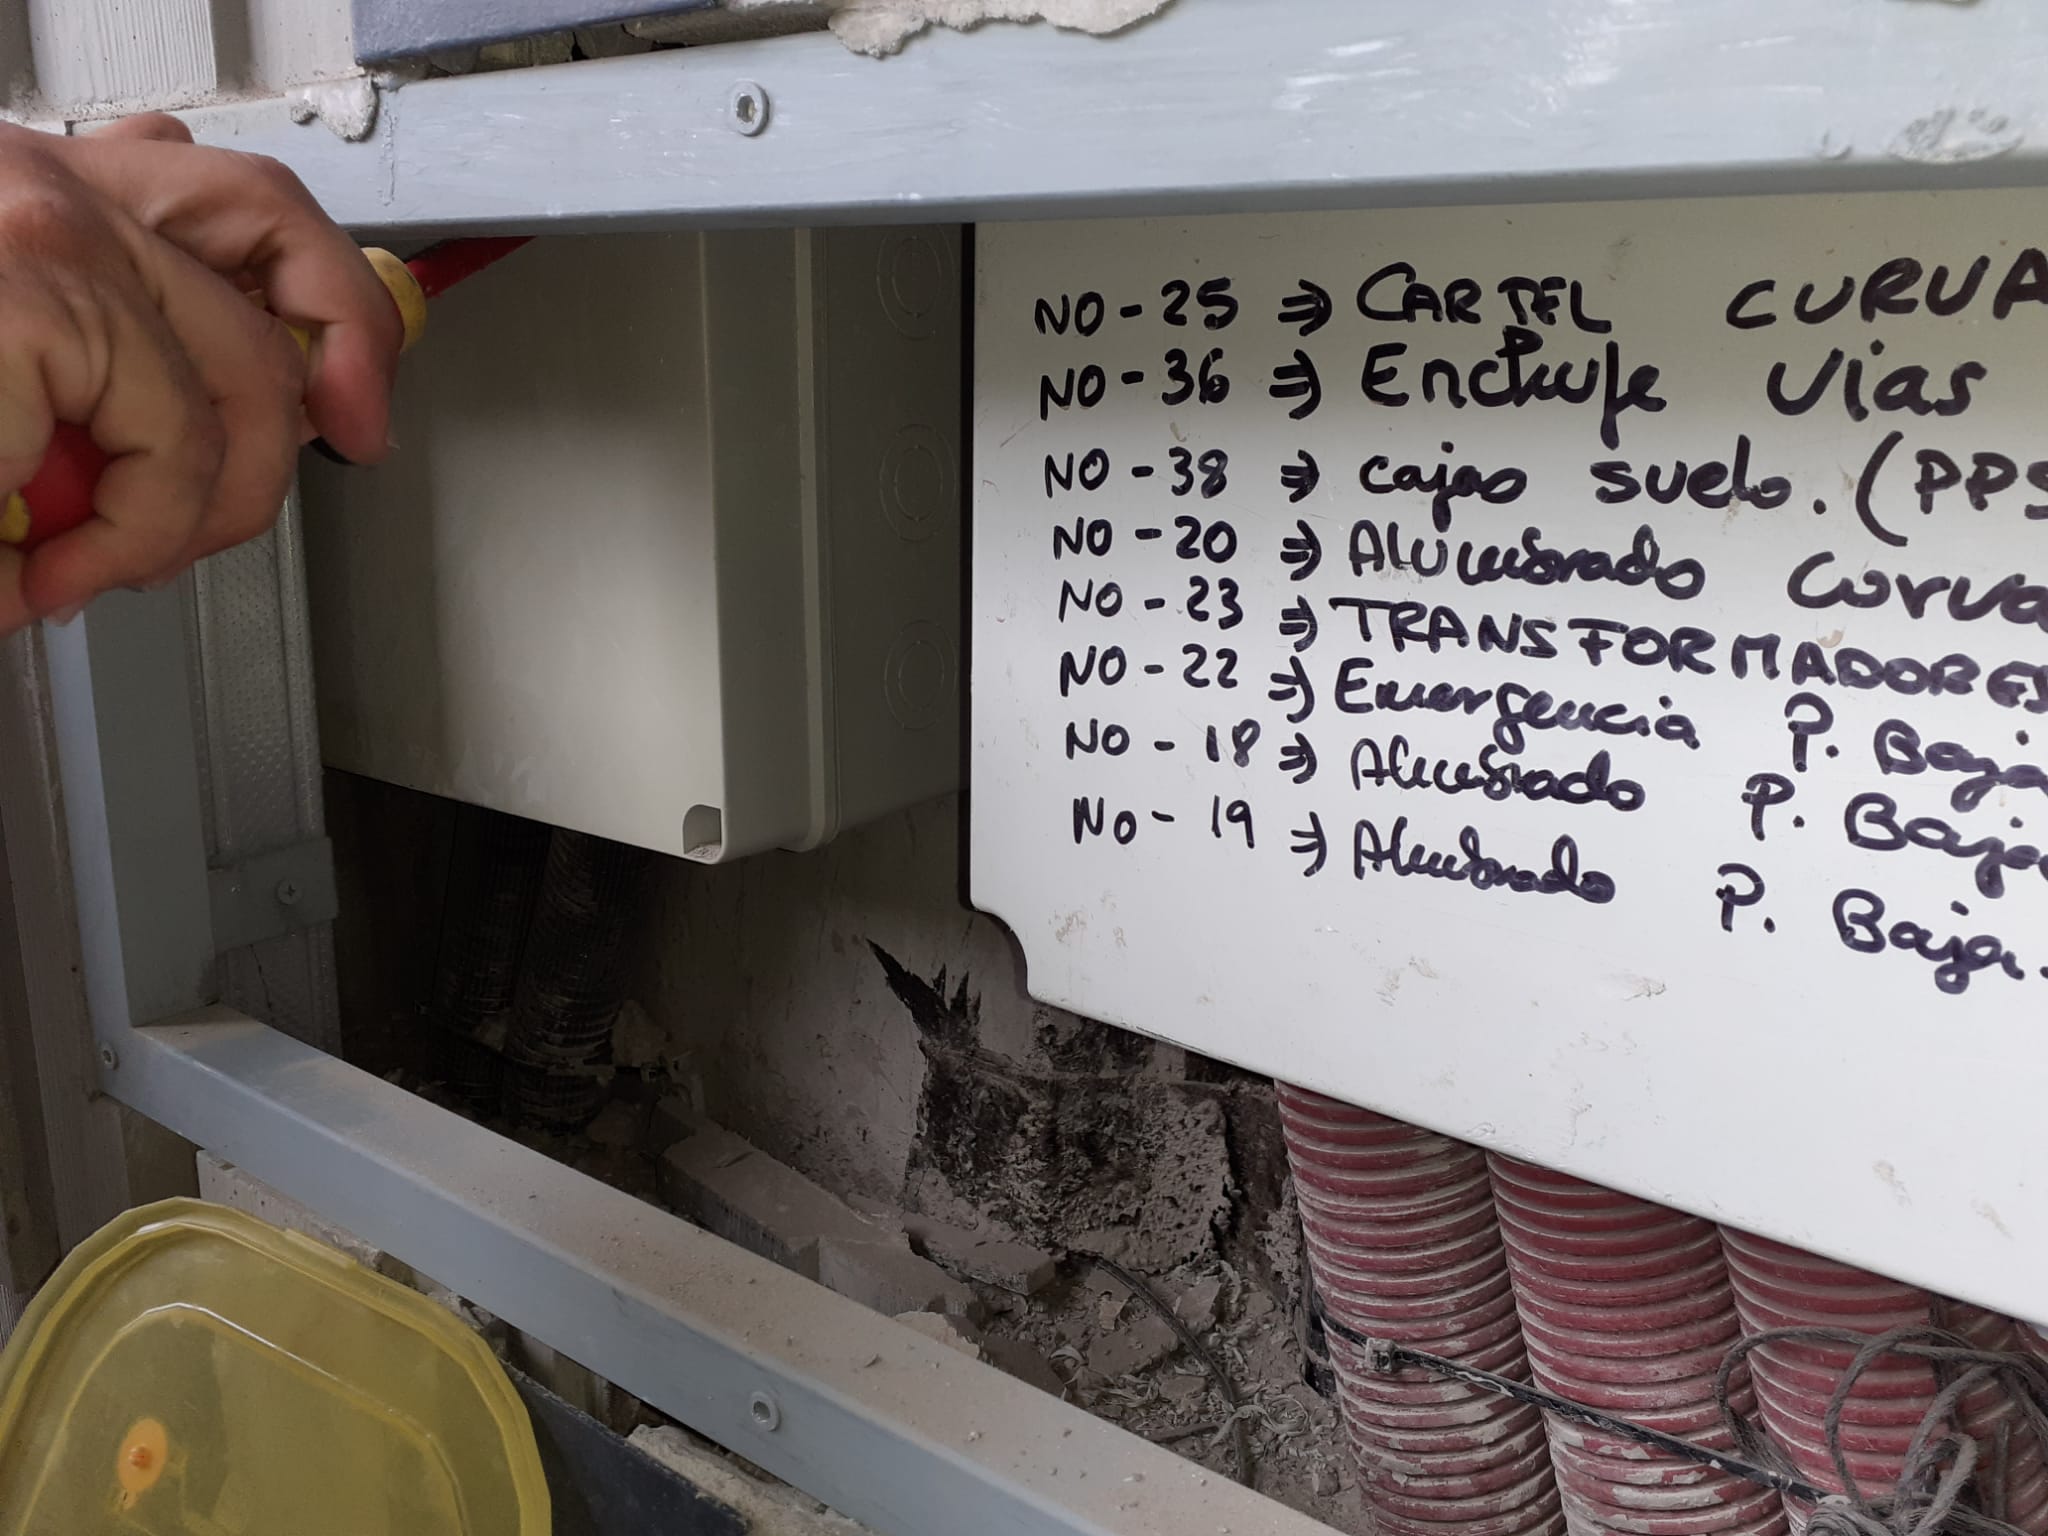 NO-25 ⇒ CARTEL CURVA
NO-36 ⇒ Enchufe Vias
NO-38 ⇒ cajas suelo. (PPS
NO-20 ⇒ Alumbrado Curva
NO-23 ⇒ TRANSFORMADORES
NO-22 ⇒ Emergencia P. Baja
NO-18 ⇒ Alumbrado P. Baja
NO-19 ⇒ Alumbrado P. Baja.